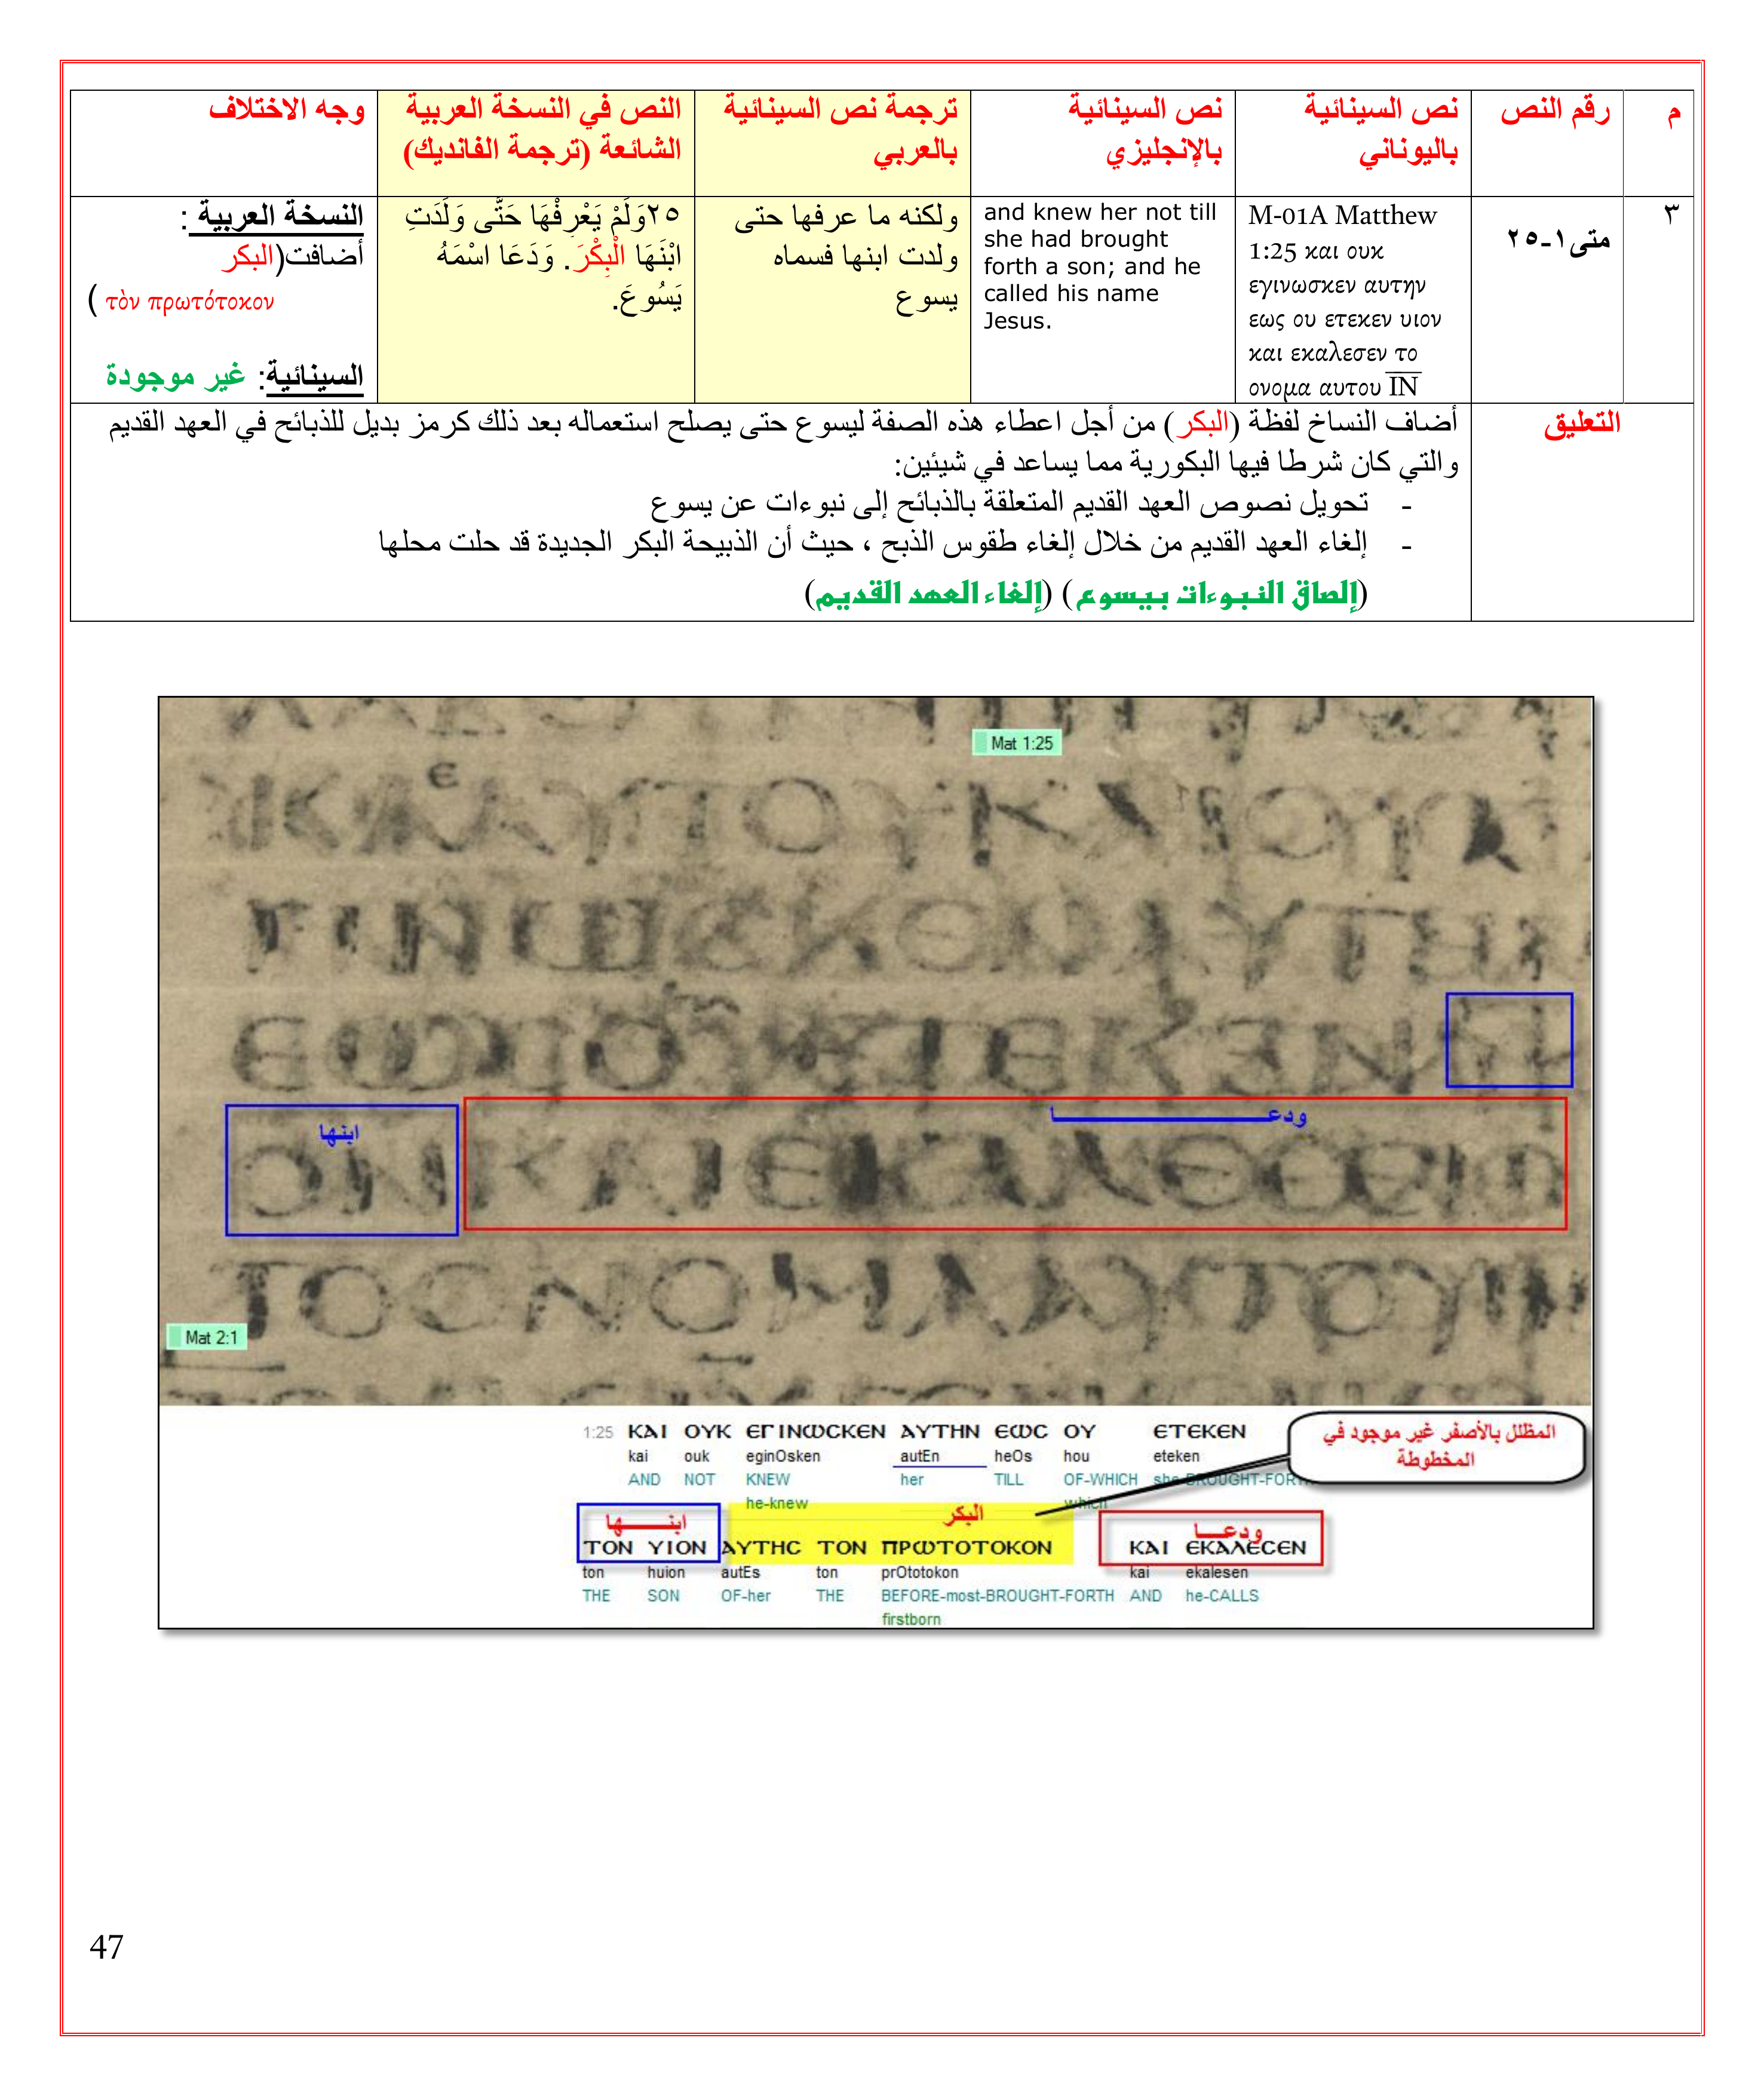 م
رقم النص
نص السينائية
باليوناني
نص السينائية
بالإنجليزي
ترجمة نص السينائية
بالعربي
النص في النسخة العربية
الشائعة (ترجمة الفانديك)
وجه الاختلاف
٣
متى١-٢٥
M-01A Matthew
1:25 και ουκ
εγινωσκεν αυτην
εως ου ετεκεν υιον
και εκαλεσεν το
ονομα αυτου ΙΝ
and knew her not till
she had brought
forth a son; and he
called his name
Jesus.
ولكنه ما عرفها حتى
ولدت ابنها فسماه
يسوع
٢٥وَلَمْ يَعْرِفْهَا حَتَّى وَلَدَتِ
ابْنَهَا الْبِكْرَ. وَدَعَا اسْمَهُ
يَسُوعَ.
النسخة العربية :
أضافت(البكر
τὸν πρωτότοκον )
السينائية: غير موجودة
التعليق
أضاف النساخ لفظة (البكر) من أجل اعطاء هذه الصفة ليسوع حتى يصلح استعماله بعد ذلك كرمز بديل للذبائح في العهد القديم
والتي كان شرطا فيها البكورية مما يساعد في شيئين:
- تحويل نصوص العهد القديم المتعلقة بالذبائح إلى نبوءات عن يسوع
- إلغاء العهد القديم من خلال إلغاء طقوس الذبح ، حيث أن الذبيحة البكر الجديدة قد حلت محلها
(إلصاق النبوءات بيسوع) (إلغاء العهد القديم)
Mat 1:25
ودعـــــــــا
ابنها
Mat 2:1
1:25 ΚΑΙ ΟΥΚ ΕΓΙΝΩϹΚΕΝ ΑΥΤΗΝ ΕΩϹ ΟΥ ΕΤΕΚΕΝ
kai ouk eginOsken autEn heOs hou eteken
AND NOT KNEW her TILL OF-WHICH she-BROUGHT-FORTH
he-knew which
المظلل بالأصفر غير موجود في
المخطوطة
ابنــــها البكر ودعـــا
ΤΟΝ ΥΙΟΝ ΑΥΤΗϹ ΤΟΝ ΠΡΩΤΟΤΟΚΟΝ ΚΑΙ ΕΚΑΛΕϹΕΝ
ton huion autEs ton prOtotokon kai ekalesen
THE SON OF-her THE BEFORE-most-BROUGHT-FORTH AND he-CALLS
firstborn
47